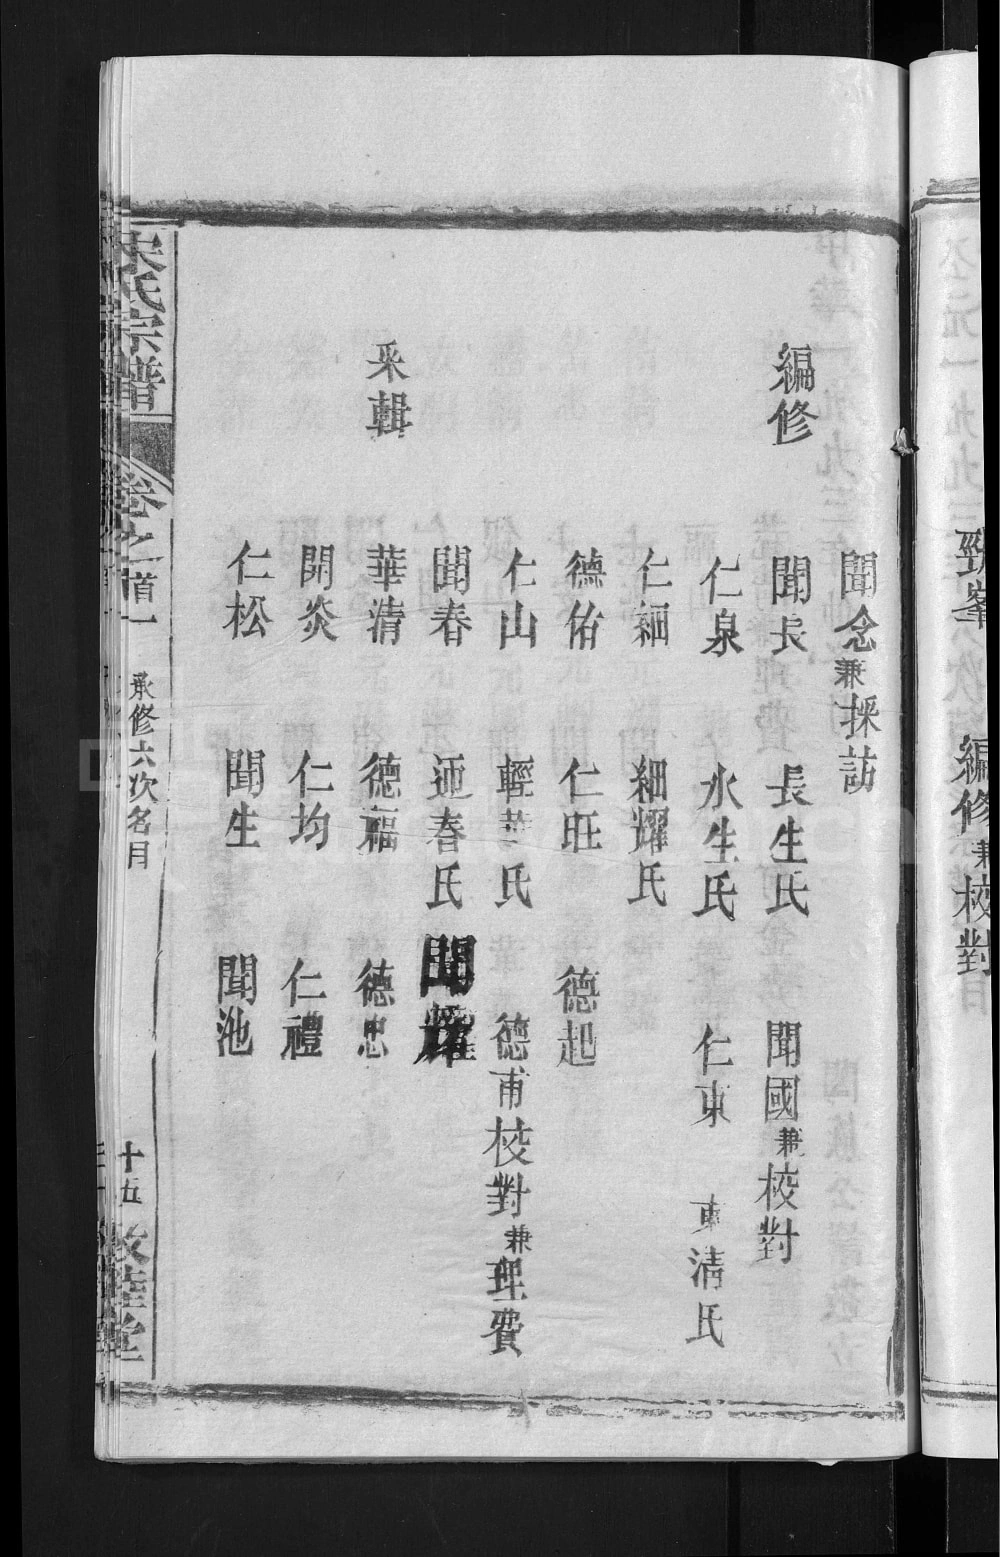 勁峯 編修兼校對
聞念兼採訪
編修 聞長 長生氏 聞國兼校對
仁泉 水生氏 仁東 東清氏
仁細 細耀氏
德佑 仁旺 德起
仁山 輕華氏 德甫校對兼理費
聞春 迊春氏 聞耀
采輯 華清 德福 德忠
開炎 仁均 仁禮
仁松 聞生 聞池
宋氏宗譜 卷之首一 承修六次名目 十五 敦睦堂